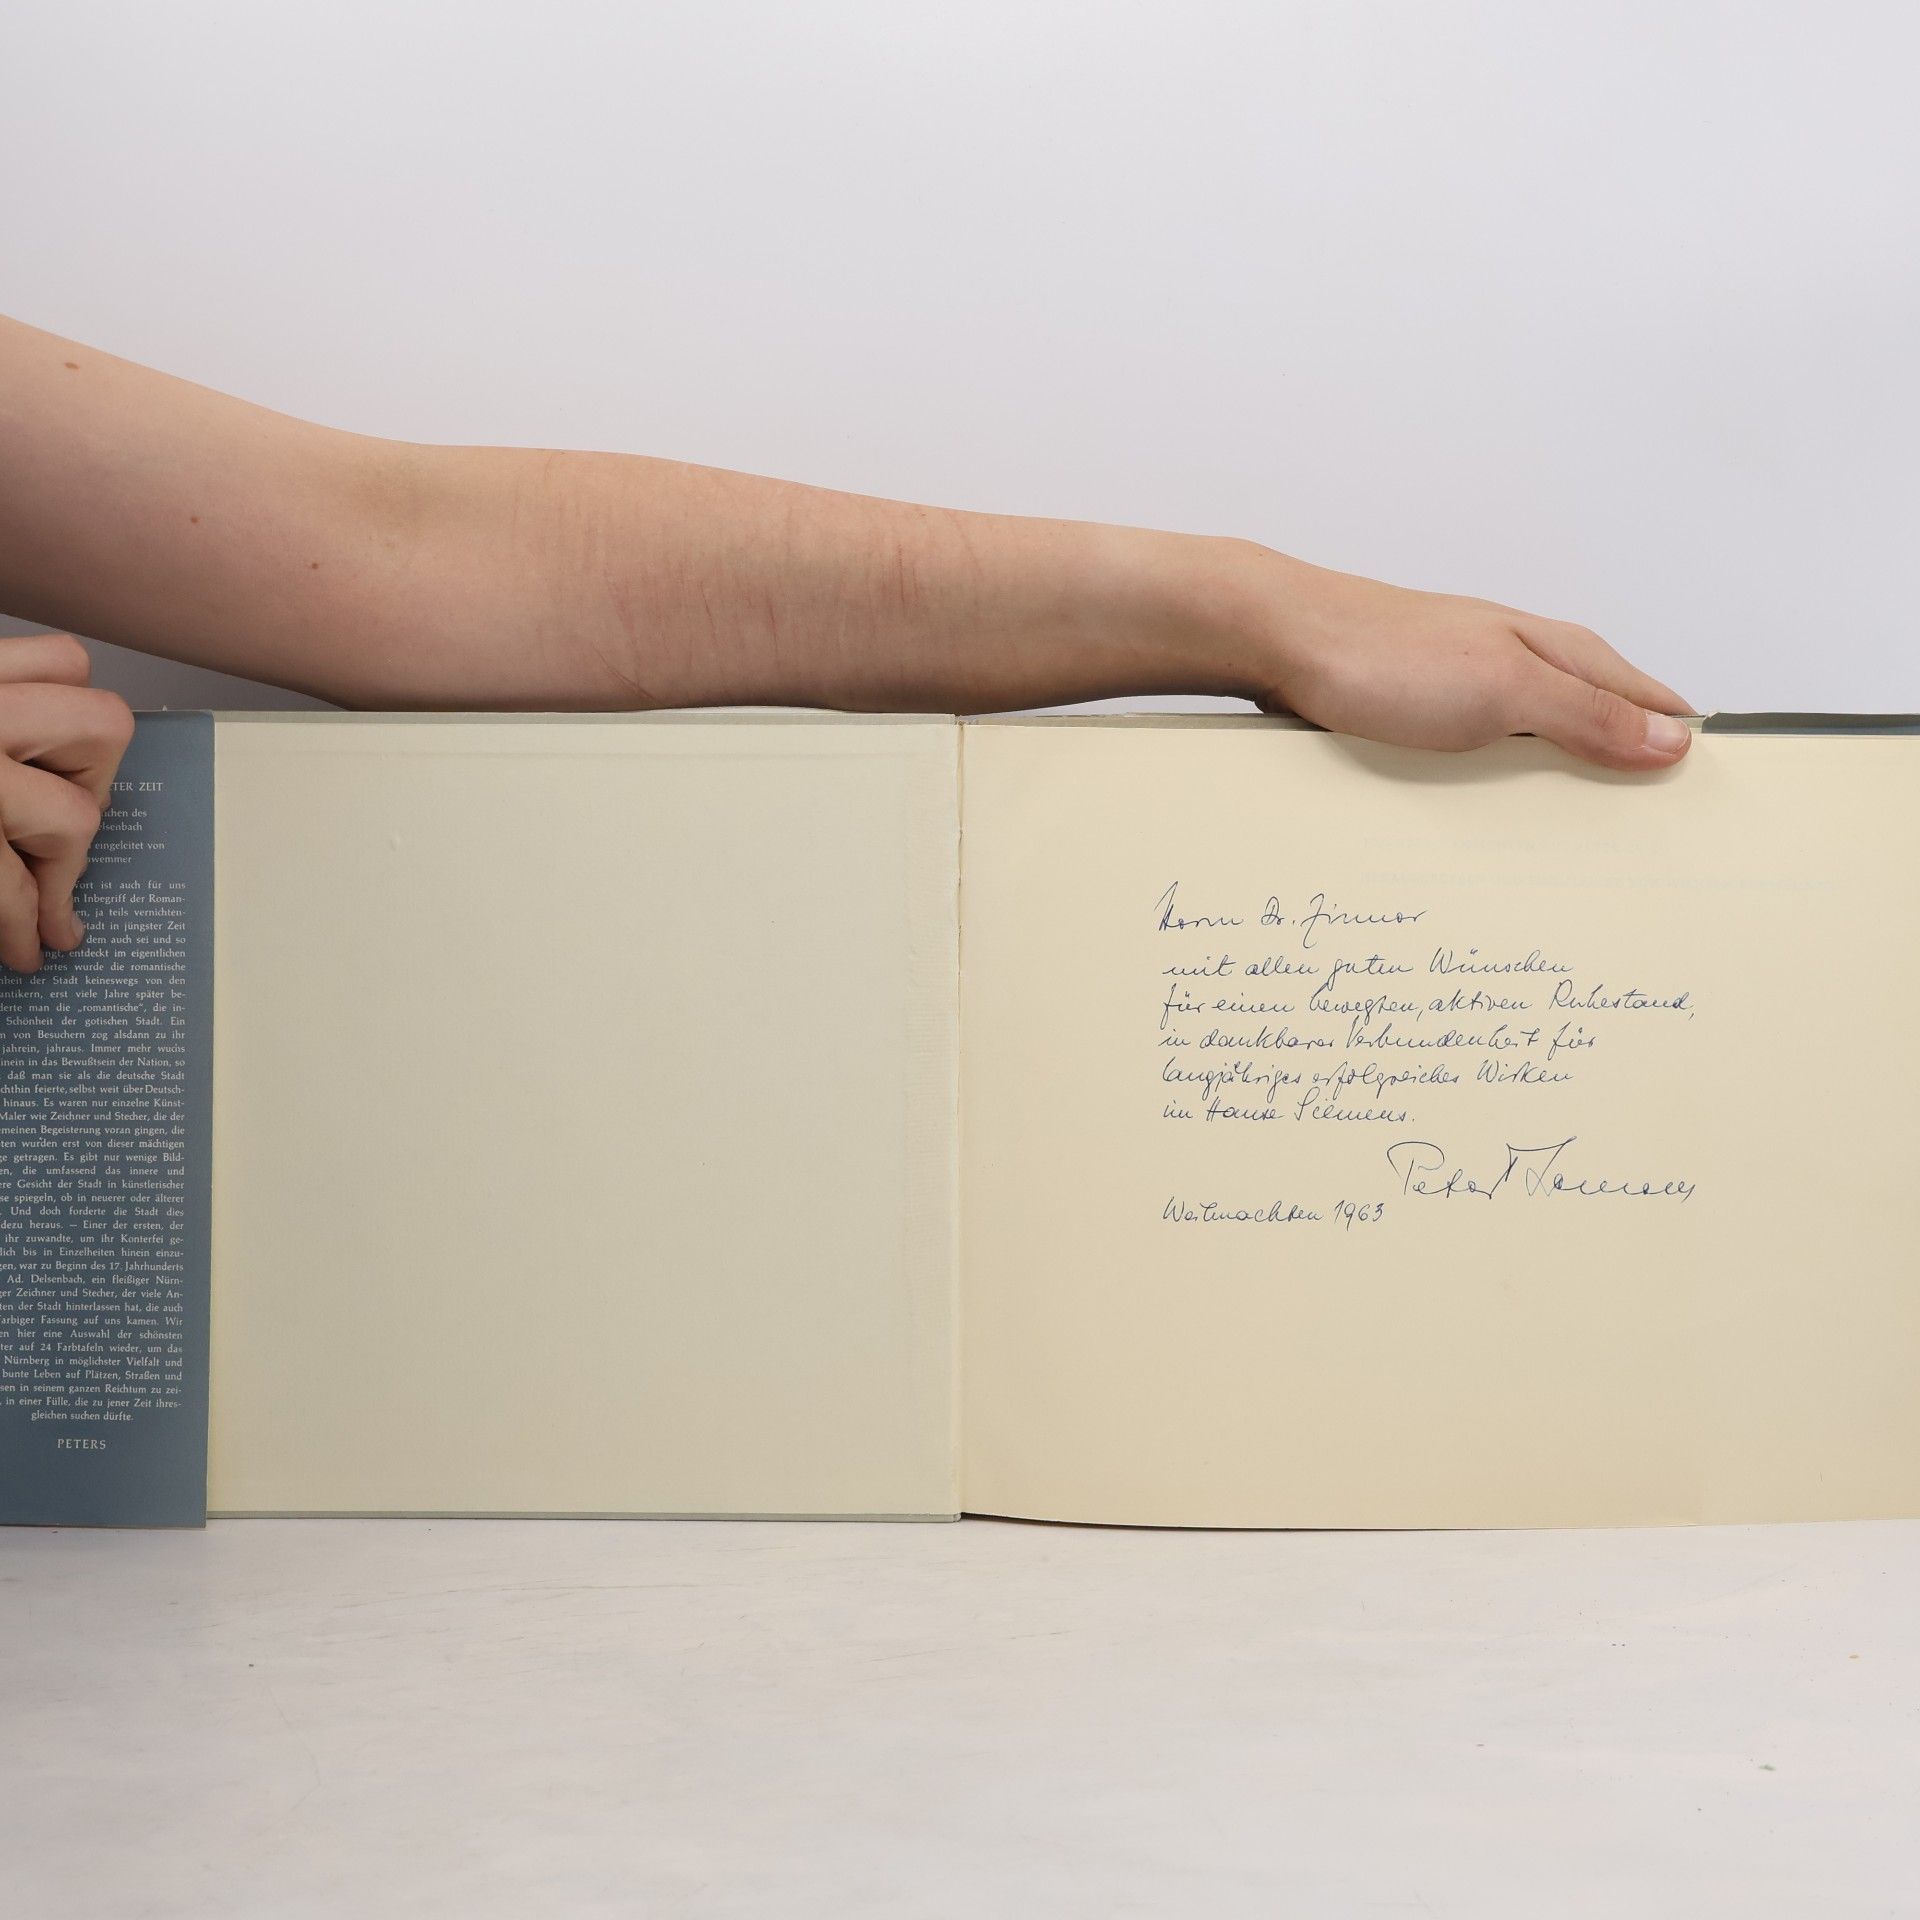 TER ZEIT
ichen des
elsenbach
eingeleitet von
wemmer
Wort ist auch für uns
n Inbegriff der Roman-
en, ja teils vernichten-
Stadt in jüngster Zeit
dem auch sei und so
ngt, entdeckt im eigentlichen
ortes wurde die romantische
nheit der Stadt keineswegs von den
antikern, erst viele Jahre später be-
derte man die „romantische“, die in-
Schönheit der gotischen Stadt. Ein
m von Besuchern zog alsdann zu ihr
jahrein, jahraus. Immer mehr wuchs
inein in das Bewußtsein der Nation, so
daß man sie als die deutsche Stadt
chthin feierte, selbst weit über Deutsch-
hinaus. Es waren nur einzelne Künst-
Maler wie Zeichner und Stecher, die der
meinen Begeisterung voran gingen, die
ten wurden erst von dieser mächtigen
ge getragen. Es gibt nur wenige Bild-
en, die umfassend das innere und
ere Gesicht der Stadt in künstlerischer
se spiegeln, ob in neuerer oder älterer
. Und doch forderte die Stadt dies
dezu heraus. — Einer der ersten, der
ihr zuwandte, um ihr Konterfei ge-
lich bis in Einzelheiten hinein einzu-
gen, war zu Beginn des 17. Jahrhunderts
Ad. Delsenbach, ein fleißiger Nürn-
ger Zeichner und Stecher, der viele An-
ten der Stadt hinterlassen hat, die auch
farbiger Fassung auf uns kamen. Wir
en hier eine Auswahl der schönsten
ter auf 24 Farbtafeln wieder, um das
Nürnberg in möglichster Vielfalt und
bunte Leben auf Plätzen, Straßen und
sen in seinem ganzen Reichtum zu zei-
, in einer Fülle, die zu jener Zeit ihres-
gleichen suchen dürfte.
PETERS
Herrn Dr.
mit allen guten Wünschen
für einen bewegten, aktiven Ruhestand,
in dankbarer Verbundenheit für
langjähriges erfolgreiches Wirken
im Hause Siemens.
Peter
Weihnachten 1963